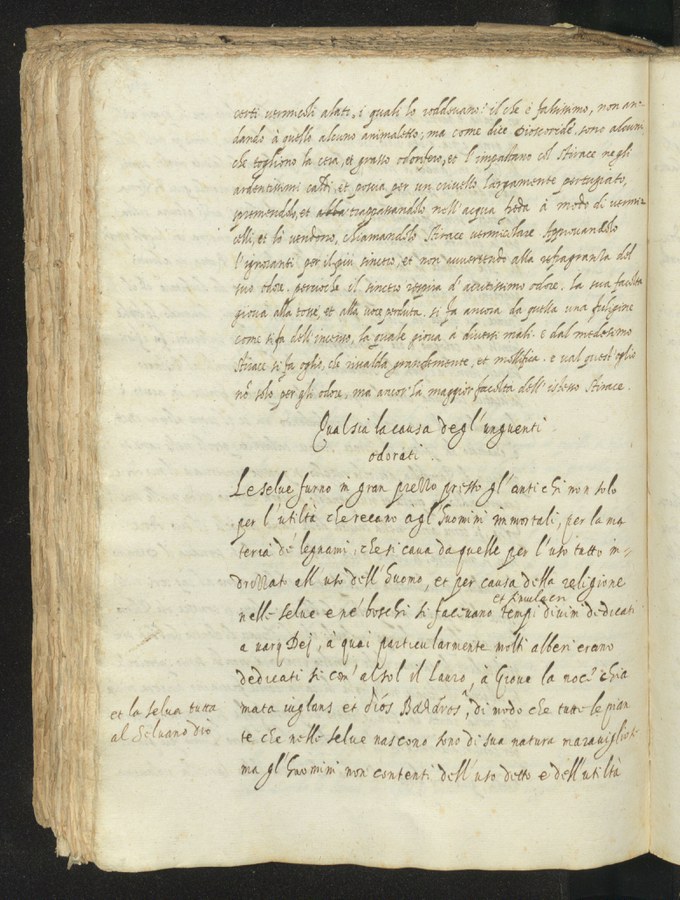 certi vermicelli alati, i quali lo roddevano: il che è falsissimo, non an=
dando à quello alcuno animaletto, ma come dice Dioscoride, sono alcuni
che togliono la cera, et grasso odorifero, et l'impastano col stirace negli
ardentissimi caldi, et poscia per un crivello largamente pertugiato,
premendolo, et trappassandolo nell'acqua freda à modo di vermi=
celli, et lo vendono, chiamandolo stirace vermiculare approvandolo
l'ignoranti per il più sincero, et non avvertendo alla fragranza del
suo odore. percioche il sincero respira d'acutissimo odore. la sua facoltà
giova alla tosse, et alla voce perduta. si fa ancora da quella una fuligine
come si fa dell'incenso, la quale giova à diversi mali. e dal medesimo
stirace si fa oglio, che riscalda grandemente, et mollifica. e val quest'oglio
nō solo per gli odori, ma ancor ha maggior facoltà dell'istesso stirace.
Qual sia la causa degl'unguenti
odorati.
Le selve furno in gran prezzo presso gl'antichi non solo
per l'utiltà che recano agl'huomini immortali, per la ma
teria de legnami, che si cava da quelle per l'uso tutto in=
drizzat all'uso dell'huomo, et per causa della religione
et simulacri
nelle selve e ne boschi si facevano tempi divini dedicati
a varij Dei, à quai particularmente molti alberi erano
dedicati si com'al sol il lauro, à Giove la noce chia
mata iuglans et diós Βαλάνος, di modo che tutte le pian
et la selva tutta
al Selvano dio
te che nelle selve nascono sono di sua natura maravigliose
ma gl'huomini non contenti dell'uso detto e dell'utiltà